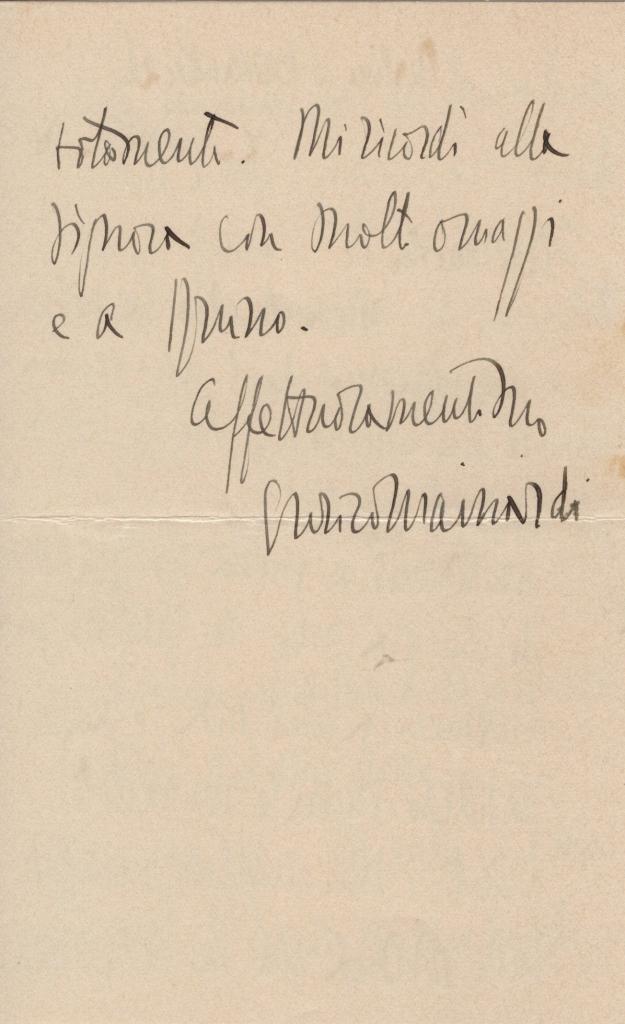 Mi ricordi alla
Signora con molti omaggi
e a Bruno.
Affettuosamente Suo
Enrico Mainardi